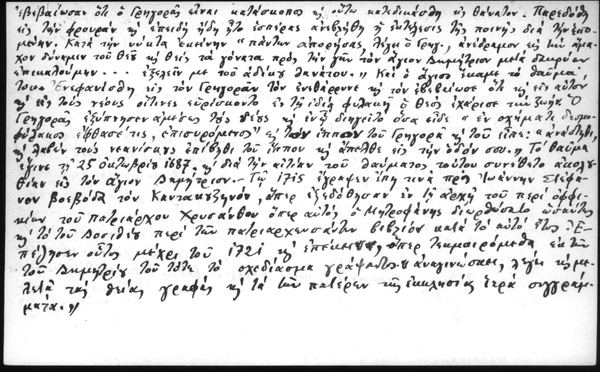 ἐβεβαίωσαν ὅτι ὁ Γρηγορᾶς εἶναι κατάσκοπος κ οὕτω κατεδικάσθη εἰς θάνατον. Παρεδόθη
εἰς τὴν φρουρὰν κ ἐπειδὴ ἤδη ἦτο ἑσπέρας ἀνεβλήθη ἡ ἐκτέλεσις τῆς ποινῆς διὰ τὴν ἑπο-
μένην. Κατὰ τὴν νύκτα ἐκείνην "πάντων ἀπορήσας, λέγει ὁ Γρηγ., ἀνέδραμον εἰς τὴν ἄμα-
χον δύναμιν τοῦ Θεοῦ κ θεὶς τὰ γόνατα πρὸς τὴν γῆν τὸν ἅγιον Δημήτριον μετὰ δακρύων
ἐπεκαλούμην... ἐξελεῖν με τοῦ ἀδίκου θανάτου." Καὶ ὁ ἅγιος ἔκαμε τὸ θαῦμα
του. Ἐνεφανίσθη εἰς τὸν Γρηγορᾶν τὸν ἐνεθάρρυνε κ τὸν ἐβεβαίωσε ὅτι κ εἰς αὐτὸν
κ εἰς τοὺς νέους οἵτινες εὑρίσκοντο ἐν τῇ ἰδίᾳ φυλακῇ ὁ Θεὸς ἐχάρισε τὴν ζωήν. Ὁ
Γρηγορᾶς ἐξύπνησεν ἀμέσως τοὺς νέους κ ἐνῷ διηγεῖτο ὅσα εἶδε "ἐν σχήματι δεσμο-
φύλακος ἔφθασέ τις, ἐπισυρόμενος" κ τὸν ἵππον τοῦ Γρηγορᾶ κ τοῦ εἶπε: "ἀνάστηθι,
κ λαβὼν τοὺς νεανίσκους ἐπίβηθι τοῦ ἵππου κ ἄπελθε εἰς τὴν ὁδόν σου." Τὸ θαῦμα
ἔγινε τῇ 25 Ὀκτωβρίου 1687, κ διὰ τὴν αἰτίαν τοῦ θαύματος τούτου συνέθετο ἀκολου-
θίαν εἰς τὸν ἅγιον Δημήτριον.- Τῷ 1715 ἔγραψεν ἔπη τινὰ πρὸς Ἰωάννην Στέφα-
νον βοεβόδα τὸν Καντακουζηνόν, ἅπερ ἐξεδόθησαν ἐν τῇ ἀρχῇ τοῦ περὶ ὀφφι-
κίων τοῦ πατριάρχου Χρυσάνθου ὅπερ αὐτὸς ὁ Μητροφάνης διωρθώσατο ὡσαύτως
κ τὸ τοῦ Δοσιθέου περὶ τῶν πατριαρχευσάντων βιβλίον κατὰ τὸ αὐτὸ ἔτος. Ἐ-
πέζησεν οὗτος μέχρι τοῦ 1721 κ ἐπέκεινα, ὅπερ τεκμαιρόμεθα ἐκ τῶν
τοῦ Δημητρίου τοῦ τότε τὸ σχεδίασμα γράψαντος· ἀναγινώσκει, λέγει κ με-
λετᾷ τὰς θείας γραφὰς κ τὰ τῶν πατέρων τῆς ἐκκλησίας ἱερὰ συγγράμ-
ματα."